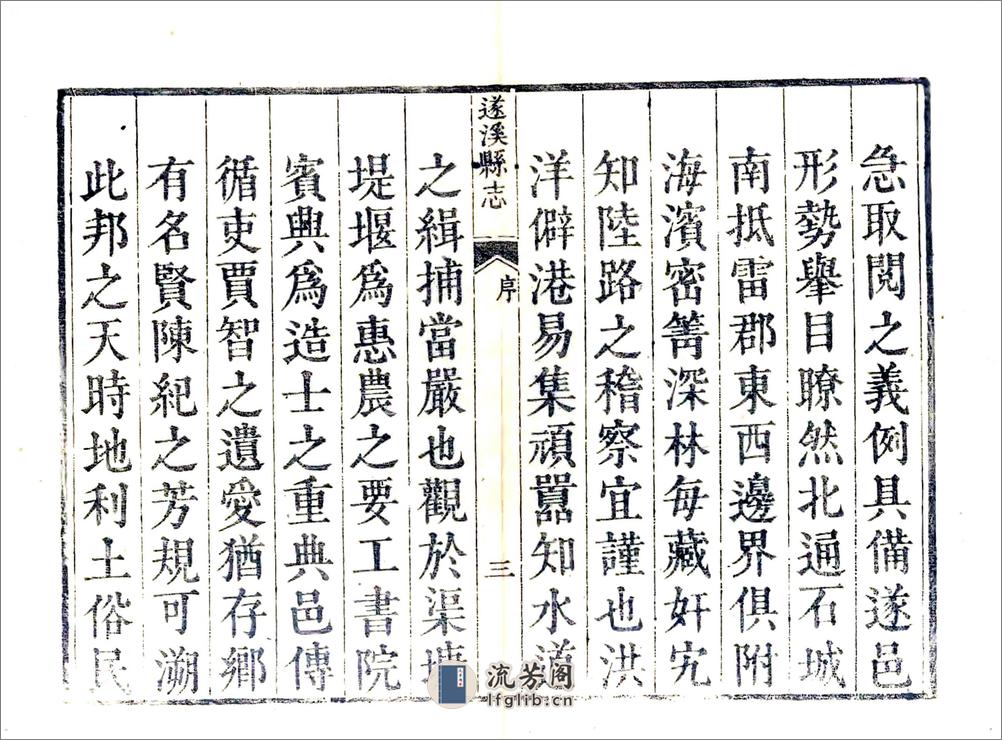 急取閱之義例具備遂邑
形勢舉目瞭然北通石城
南抵雷郡東西邊界俱附
海濱密箐深林每藏奸宄
知陸路之稽察宜謹也洪
洋僻港易集頑嚚知水道
遂溪縣志
序
三
之緝捕當嚴也觀於渠塘
堤堰爲惠農之要工書院
賓興爲造士之重典邑傳
循吏賈智之遺愛猶存鄉
有名賢陳紀之芳規可溯
此邦之天時地利土俗民
流芳阁
lfglib.cn